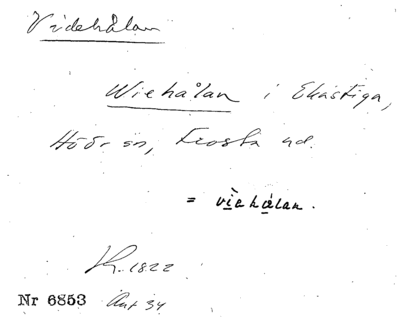 Videhålan
Wiehålan i Ekastiga,
Höör sn, Frosta hd.
= viehålan.
1822
Nr 6853 Ant 34